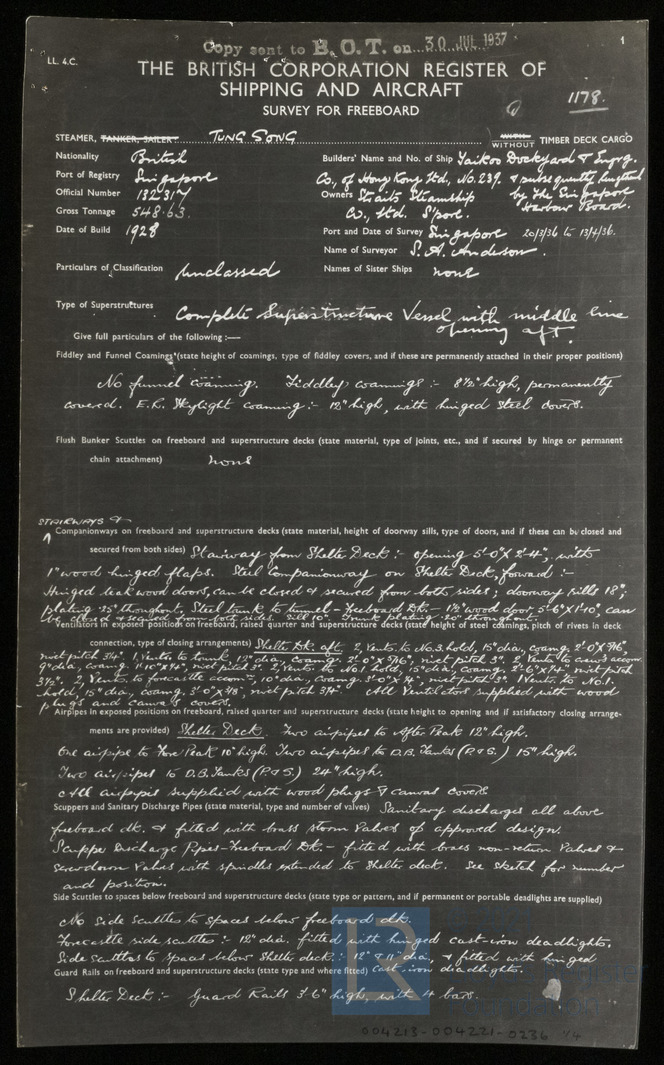 Copy sent to B.O.T. on 30 JUL 1937
1
LL. 4.C.
THE BRITISH CORPORATION REGISTER OF
SHIPPING AND AIRCRAFT
SURVEY FOR FREEBOARD
1178.
STEAMER, TANKER, SAILER Tung Song WITH WITHOUT TIMBER DECK CARGO
Nationality British
Builders' Name and No. of Ship Taikoo Dockyard & Engrg.
Port of Registry Singapore
Co., of Hong Kong Ltd., No. 239. & subsequently lengthened
Official Number 132317
Owners Straits Steamship by The Singapore
Gross Tonnage 548.63
Co., Ltd. S'pore. Harbour Board.
Date of Build 1928
Port and Date of Survey Singapore 20/3/36 to 13/4/36.
Name of Surveyor S. A. Anderson.
Particulars of Classification Unclassed
Names of Sister Ships none
Type of Superstructures Complete Superstructure Vessel with middle line
opening aft.
Give full particulars of the following :—
Fiddley and Funnel Coamings (state height of coamings, type of fiddley covers, and if these are permanently attached in their proper positions)
No funnel coaming. Fiddley coamings :- 8½" high, permanently
covered. E.R. Skylight coaming :- 12" high, with hinged steel covers.
Flush Bunker Scuttles on freeboard and superstructure decks (state material, type of joints, etc., and if secured by hinge or permanent
chain attachment) none
STAIRWAYS &
Companionways on freeboard and superstructure decks (state material, height of doorway sills, type of doors, and if these can be closed and
secured from both sides) Stairway from Shelter Deck :- opening 5'-0" X 2'-4", with
1" wood hinged flaps. Steel Companionway on Shelter Deck, forward :-
Hinged teak wood doors, can be closed & secured from both sides ; doorway sills 18" ;
plating .25" throughout. Steel trunk to tunnel - Freeboard Dk. - 1½" wood door 5'-6" X 1'-10", can
be closed & secured from both sides. Sill 10". Trunk plating .20" throughout.
Ventilators in exposed positions on freeboard, raised quarter and superstructure decks (state height of steel coamings, pitch of rivets in deck
connection, type of closing arrangements) Shelter Dk. aft 2, Vents. to No. 3. hold, 15" dia, coamg. 2'-0" X 5/16",
rivet pitch 3¼". 1, Vents. to trunk, 12" dia, coamg. 2'-0" X 5/16", rivet pitch 3". 2, Vents. to crew's accom.
9" dia, coamg. 1'-10" X ¼", rivet pitch 3". 2, Vents. to No. 1 hold, 15" dia, coamg. 2'-6" X ¼", rivet pitch
3½". 2, Vents. to forecastle accom., 10" dia, coamg. 3'-0" X ¼", rivet pitch 3". 1 Vents. to No. 1.
hold, 15" dia, coamg. 3'-0" X 3/8", rivet pitch 3¼". All Ventilators supplied with wood
plugs and canvas covers.
Airpipes in exposed positions on freeboard, raised quarter and superstructure decks (state height to opening and if satisfactory closing arrange-
ments are provided) Shelter Deck. Two airpipes to After Peak 12" high.
One airpipe to Fore Peak 10" high. Two airpipes to D.B. Tanks (P.&S.) 15" high.
Two airpipes to D.B. Tanks (P.&S.) 24" high.
All airpipes supplied with wood plugs & canvas covers
Scuppers and Sanitary Discharge Pipes (state material, type and number of valves) Sanitary discharges all above
freeboard dk. & fitted with brass storm Valves of approved design.
Scupper Discharge Pipes - Freeboard Dk. - fitted with brass non-return Valves &
screwdown Valves with spindles extended to Shelter deck. See sketch for number
and position.
Side Scuttles to spaces below freeboard and superstructure decks (state type or pattern, and if permanent or portable deadlights are supplied)
No Side Scuttles to spaces below freeboard dk.
Forecastle side scuttles :- 12" dia. fitted with hinged cast-iron deadlights.
Side scuttles to spaces below Shelter deck :- 12" & 11" dia, & fitted with hinged
Guard Rails on freeboard and superstructure decks (state type and where fitted) cast-iron deadlights.
Shelter Deck :- Guard Rails 3'-6" high, with 4 bars.
LR
004213-004221-0236 1/4